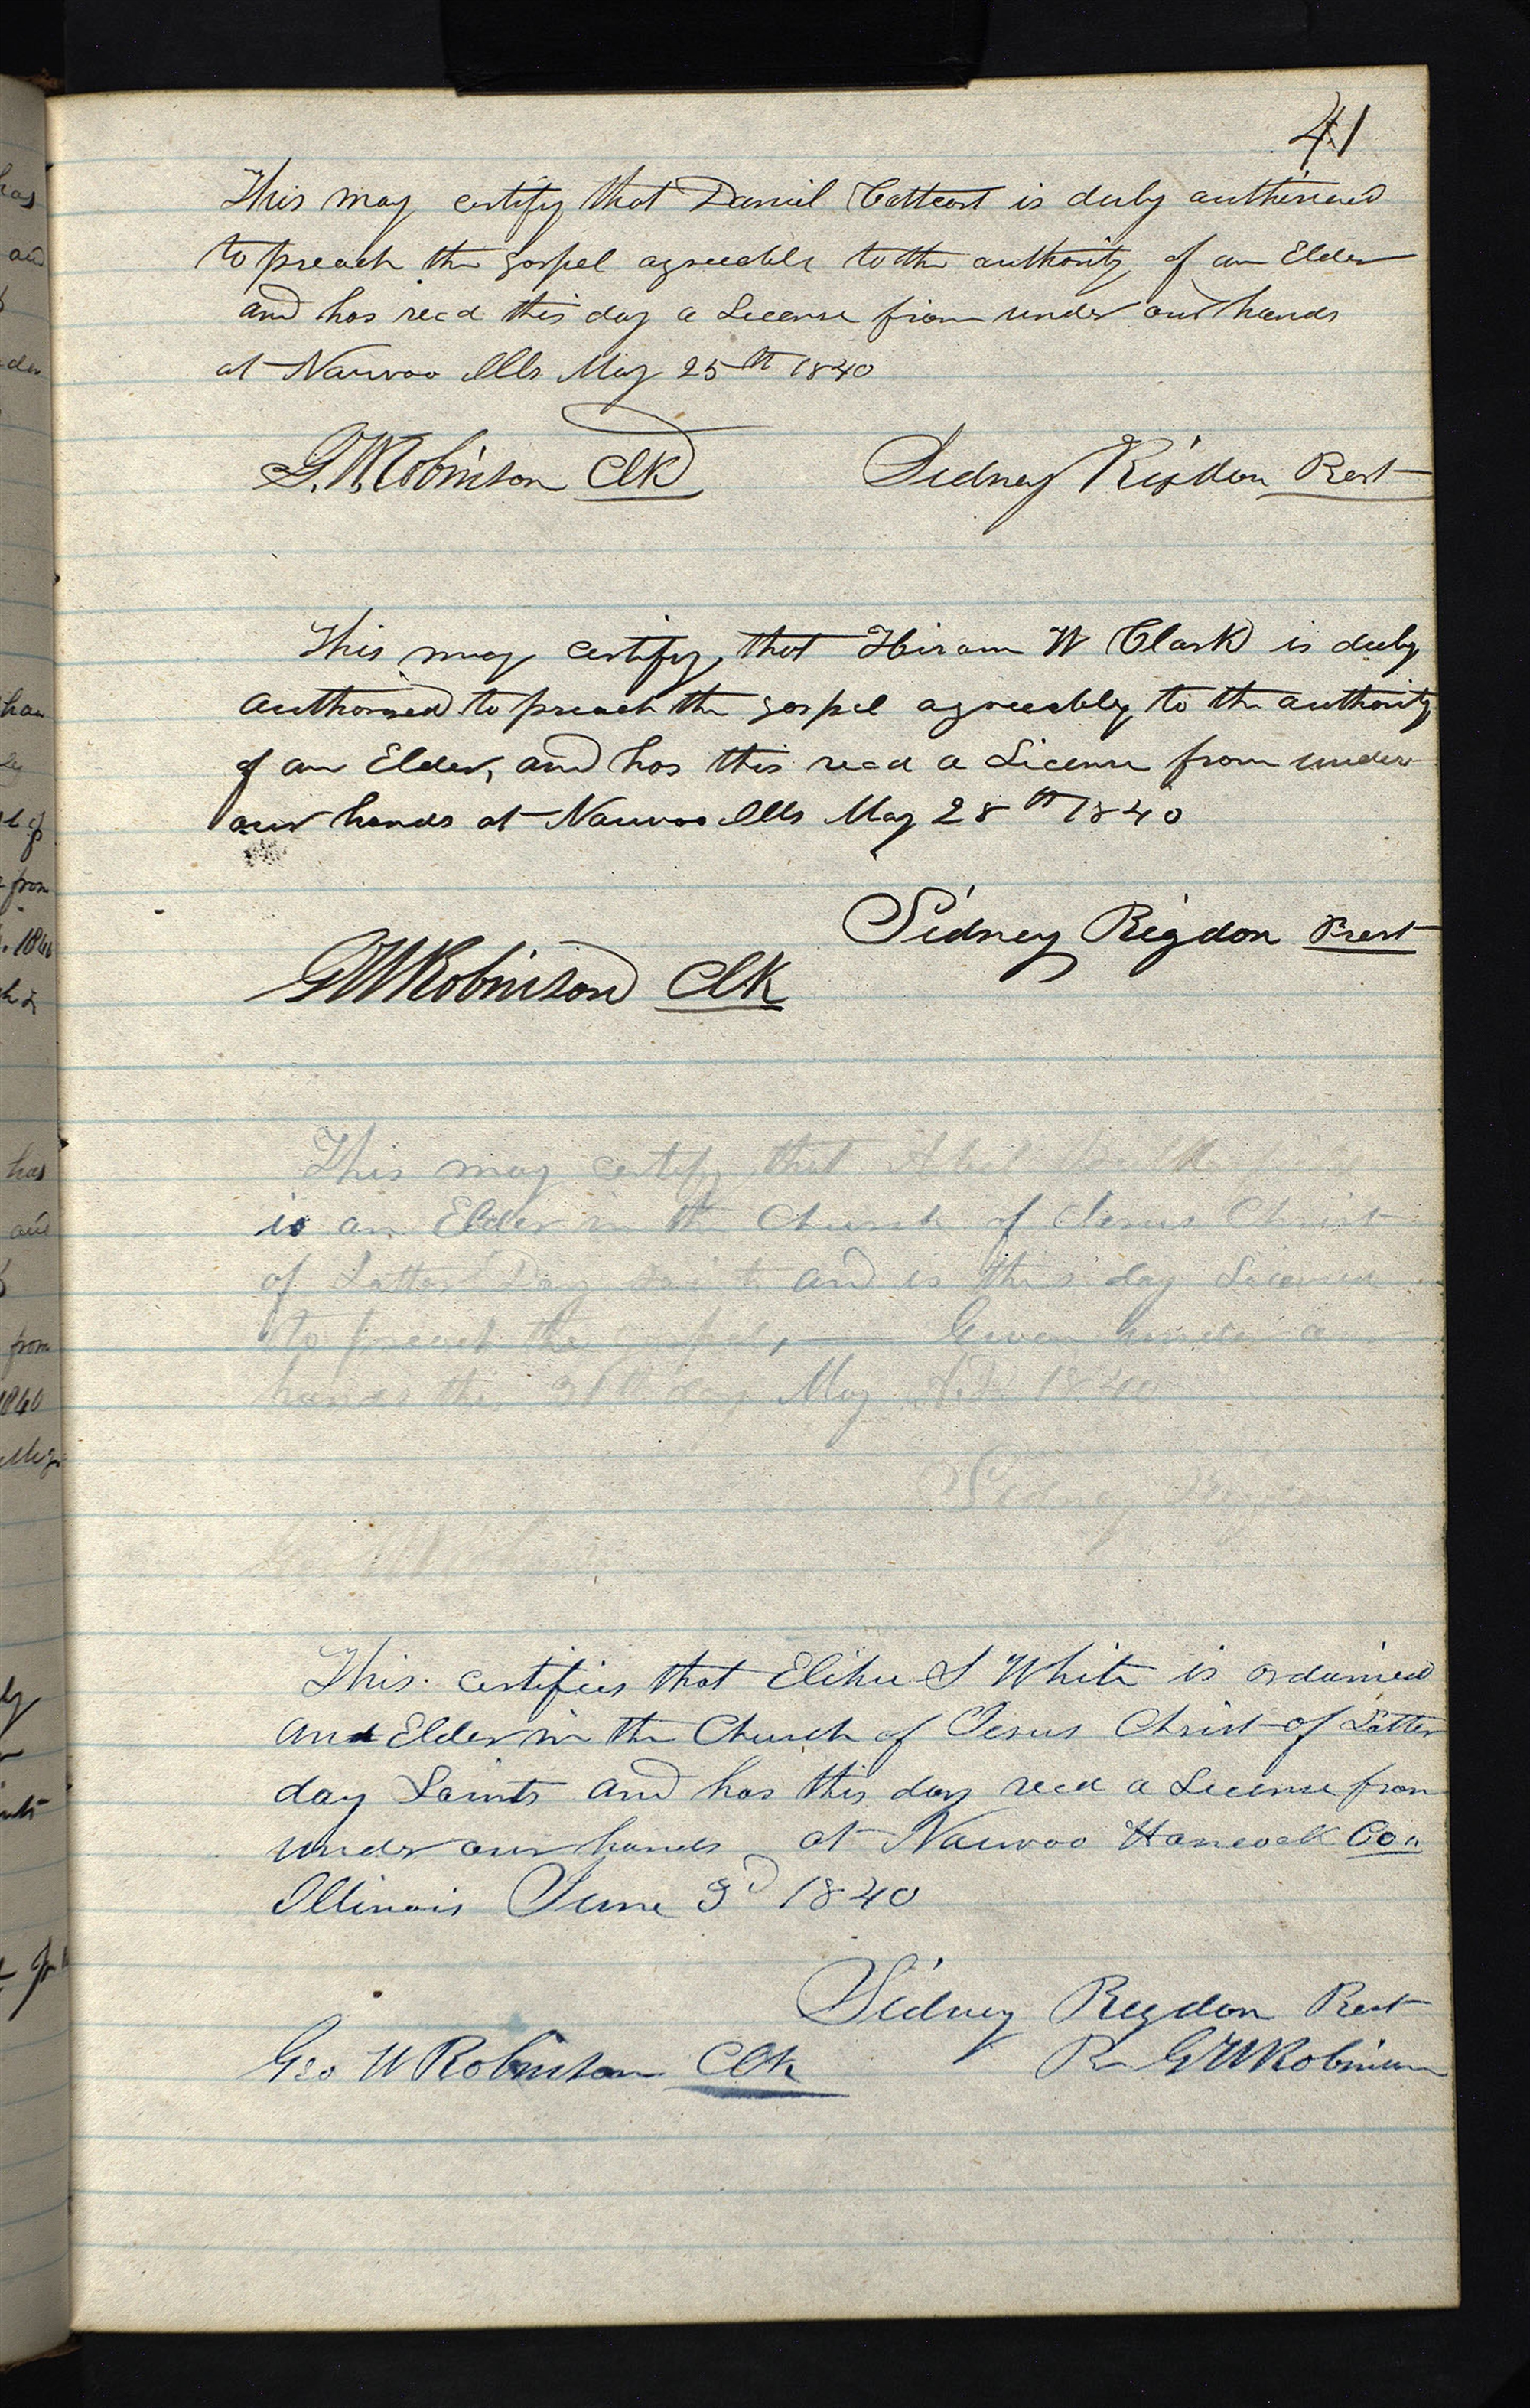 41
This may certify that Daniel Cattcart is duly authorised
to preach the gospel agreeable to the authority of an Elder
and has recd this day a License from under our hands
at Nauvoo Ills May 25th 1840
G. W. Robinson Clk Sidney Rigdon Prest
This may certify, that Hiram W Clark is duly
authorised to preach the gospel agreeably to the authority
of an Elder, and has this recd a License from under
our hands at Nauvoo Ills May 28th 1840
Sidney Rigdon Prest
GW Robinson Clk
This may certify that Abel
is an Elder in the Church of Jesus Christ
of Latter Day Saints and is this day License
to preach the Gospel, — Given under
hands this day May A.D. 1840
Sidney Rigdon
This certifies that Elihu S White is ordained
and Elder in the Church of Jesus Christ of Latter
day Saints and has this day recd a License from
under our hands at Nauvoo Hancock Co.
Illinois June 3d 1840
Sidney Rigdon Prest
Geo W Robinson Clk Pr GW Robinson